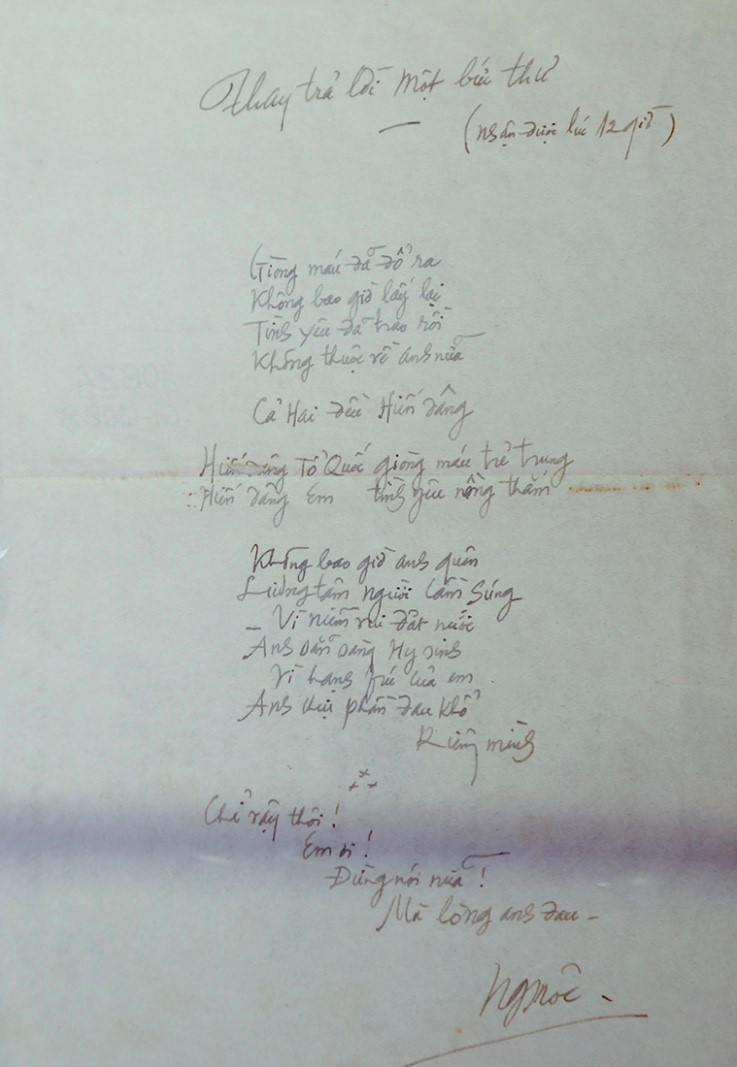 Thay trả lời một bức thư
(nhận được lúc 12 giờ)
Giòng máu đã đổ ra
Không bao giờ lấy lại
Tình yêu đã trao rồi
Không thuộc về anh nữa
Cả Hai đều Hiến dâng
Hiến dâng Tổ Quốc giòng máu trẻ trung
Hiến dâng Em tình yêu nồng thắm
Không bao giờ anh quên
Lương tâm người cầm súng
_ Vì niềm vui đất nước
Anh sẵn sàng Hy sinh
Vì hạnh phúc của em.
Anh chịu phần đau khổ
Riêng mình
Chỉ vậy thôi!
Em ơi!
Đừng nói nữa!
Mà lòng anh đau -